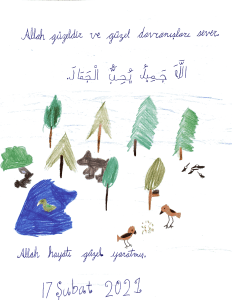 Allah güzeldir ve güzel davranışları sever.
اللَّهَ جَمِيلٌ يُحِبُّ الْجَمَالَ.
Allah hayatı güzel yaratmış.
17 Şubat 2021